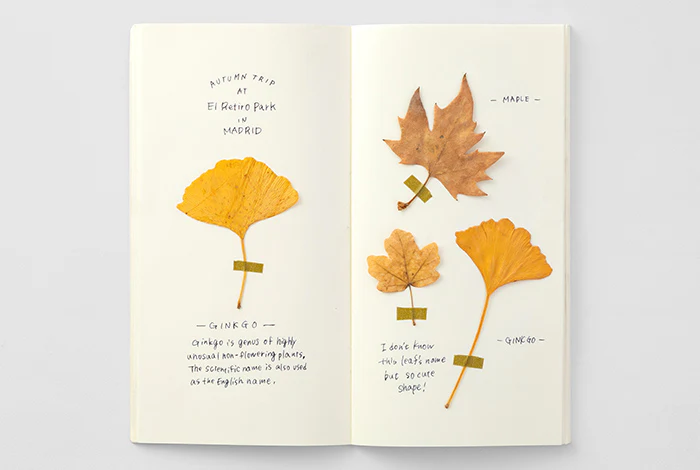 AUTUMN TRIP
AT
El Retiro Park
IN
MADRID
— GINKGO —
Ginkgo is genus of highly
unusual non-flowering plants,
The scientific name is also used
as the English name.
— MAPLE —
I don't know
this leaf's name
but so cute
shape!
— GINKGO —